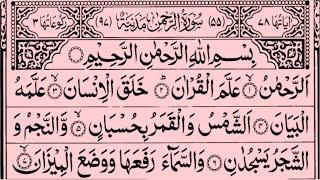 اٰيَاتُهَا ۷۸ (۵۵) سُوْرَةُ الرَّحْمٰنِ مَدَنِيَّةٌ (۹۷) رُكُوْعَاتُهَا ۳
بِسْمِ اللهِ الرَّحْمٰنِ الرَّحِيْمِ
اَلرَّحْمٰنُ ۝۱ عَلَّمَ الْقُرْاٰنَ ۝۲ خَلَقَ الْاِنْسَانَ ۝۳ عَلَّمَهُ
الْبَيَانَ ۝۴ اَلشَّمْسُ وَالْقَمَرُ بِحُسْبَانٍ ۝۵ وَّالنَّجْمُ وَ
الشَّجَرُ يَسْجُدٰنِ ۝۶ وَالسَّمَآءَ رَفَعَهَا وَوَضَعَ الْمِيْزَانَ ۝۷